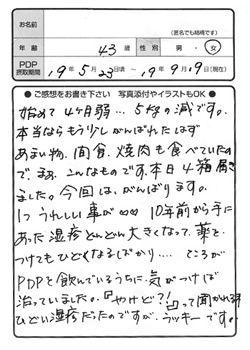 お名前
(匿名でも結構です)
年齢 43歳 性別 男・女
PDP摂取期間 19年5月23日頃～19年9月19日(現在)
●ご感想をお書き下さい 写真添付やイラストもOK●
始めて4ヶ月弱…5kgの減です。
本当ならもう少しがんばれたはず
あまい物、間食、焼肉も食べていたの
で まぁ、こんなものです。本日4箱届き
ました。今回は、がんばります。
1つうれしい事が 10年前から手に
あった湿疹どんどん大きくなって、薬を
つけてもひどくなるばかり…。ところが
PDPを飲んでいるうちに、気がつけば
治っていました。『やけど?!』って聞かれる程
ひどい湿疹だったのですが、ラッキーです。